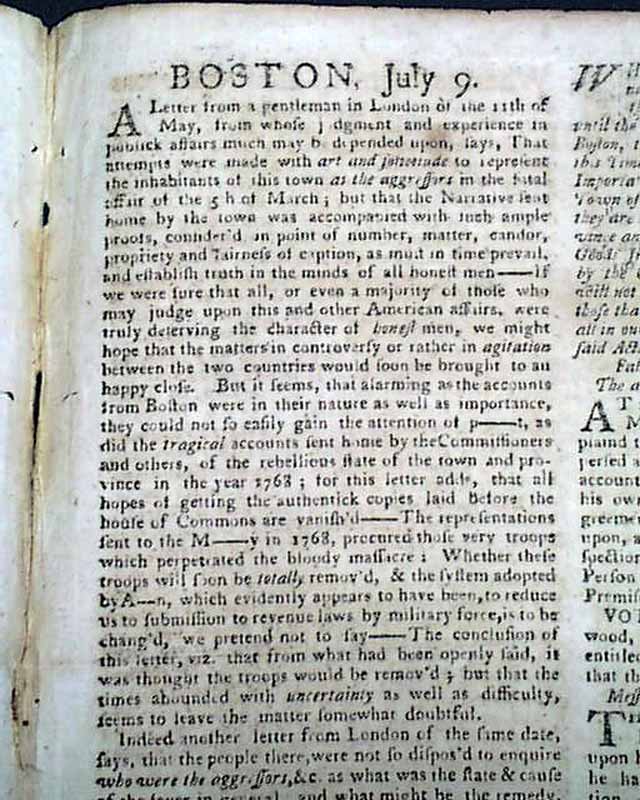 BOSTON, July 9.
A Letter from a gentleman in London of the 11th of
May, from whose judgment and experience in
publick affairs much may be depended upon, says, That
attempts were made with art and fortitude to represent
the inhabitants of this town as the aggressors in the fatal
affair of the 5th of March; but that the Narrative sent
home by the town was accompanied with such ample
proofs, consider'd in point of number, matter, candor,
propriety and fairness of caption, as must in time prevail,
and establish truth in the minds of all honest men——If
we were sure that all, or even a majority of those who
may judge upon this and other American affairs, were
truly deserving the character of honest men, we might
hope that the matters in controversy or rather in agitation
between the two countries would soon be brought to an
happy close. But it seems, that alarming as the accounts
from Boston were in their nature as well as importance,
they could not so easily gain the attention of p——t, as
did the tragical accounts sent home by the Commissioners
and others, of the rebellious state of the town and pro-
vince in the year 1768; for this letter adds, that all
hopes of getting the authentick copies laid before the
house of Commons are vanish'd——The representations
sent to the M——y in 1768, procured those very troops
which perpetrated the bloody massacre: Whether these
troops will soon be totally remov'd, & the system adopted
by A—n, which evidently appears to have been, to reduce
us to submission to revenue laws by military force, is to be
chang'd, we pretend not to say——The conclusion of
this letter, viz. that from what had been openly said, it
was thought the troops would be remov'd; but that the
times abounded with uncertainty as well as difficulty,
seems to leave the matter somewhat doubtful.
Indeed another letter from London of the same date,
says, that the people there, were not so dispos'd to enquire
who were the aggressors, &c. as what was the state & cause
of the fever in general, and what might be the remedy.
W
until the
Boston, t
this Time
Importa
Town of
they are
vince an
Goods I
by the
will not
those tha
all in ou
said Act
Fat
The a
AT
M
plaind t
persed a
account
his own
greemen
upon, a
spection
Person
Premis
VOT
wood,
entitled
that th
Mess
T
upon h
he ha
tion